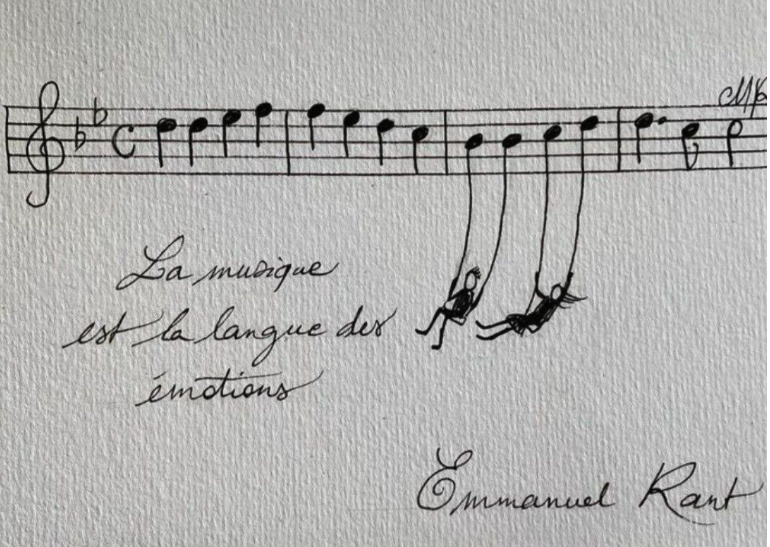 La musique
est la langue des
émotions
Emmanuel Kant